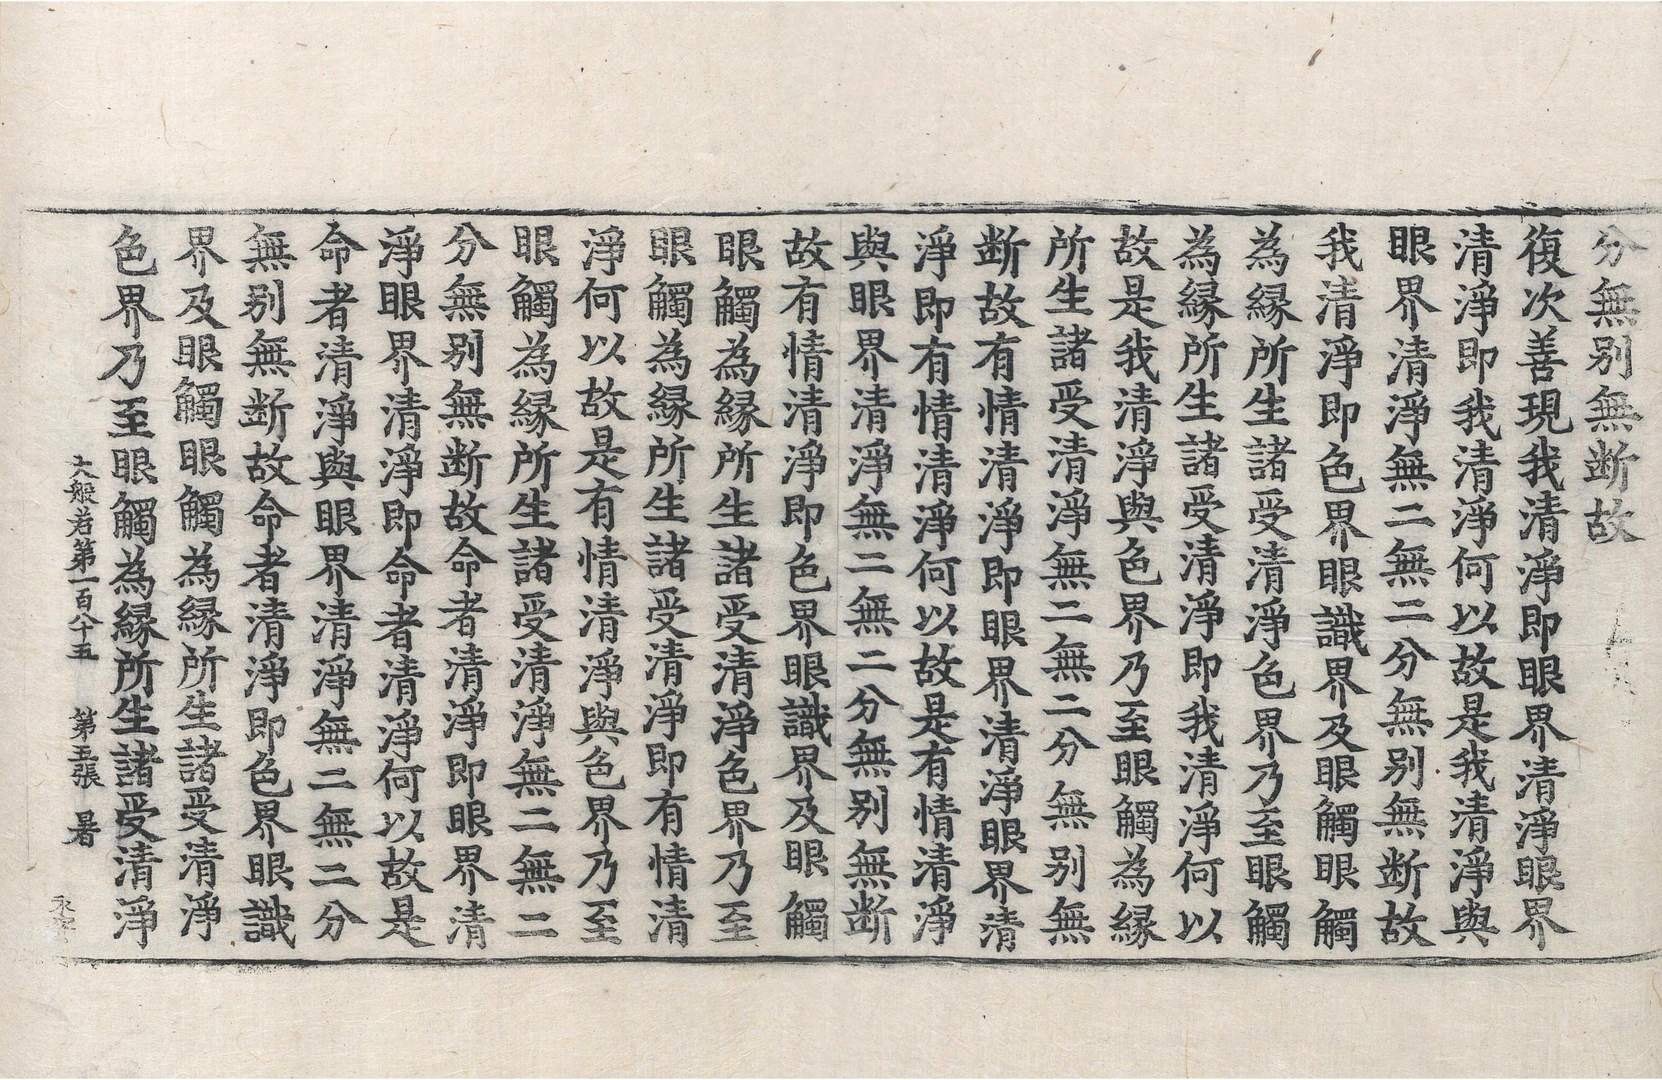 分無别無断故
復次善現我清淨即眼界清淨眼界
清淨即我清淨何以故是我清淨與
眼界清淨無二無二分無别無断故
我清淨即色界眼識界及眼觸眼觸
為縁所生諸受清淨色界乃至眼觸
為縁所生諸受清淨即我清淨何以
故是我清淨與色界乃至眼觸為縁
所生諸受清淨無二無二分無别無
断故有情清淨即眼界清淨眼界清
淨即有情清淨何以故是有情清淨
與眼界清淨無二無二分無别無断
故有情清淨即色界眼識界及眼觸
眼觸為縁所生諸受清淨色界乃至
眼觸為縁所生諸受清淨即有情清
淨何以故是有情清淨與色界乃至
眼觸為縁所生諸受清淨無二無二
分無别無断故命者清淨即眼界清
淨眼界清淨即命者清淨何以故是
命者清淨與眼界清淨無二無二分
無别無断故命者清淨即色界眼識
界及眼觸眼觸為縁所生諸受清淨
色界乃至眼觸為縁所生諸受清淨
大般若第一百八十五 第五張 暑